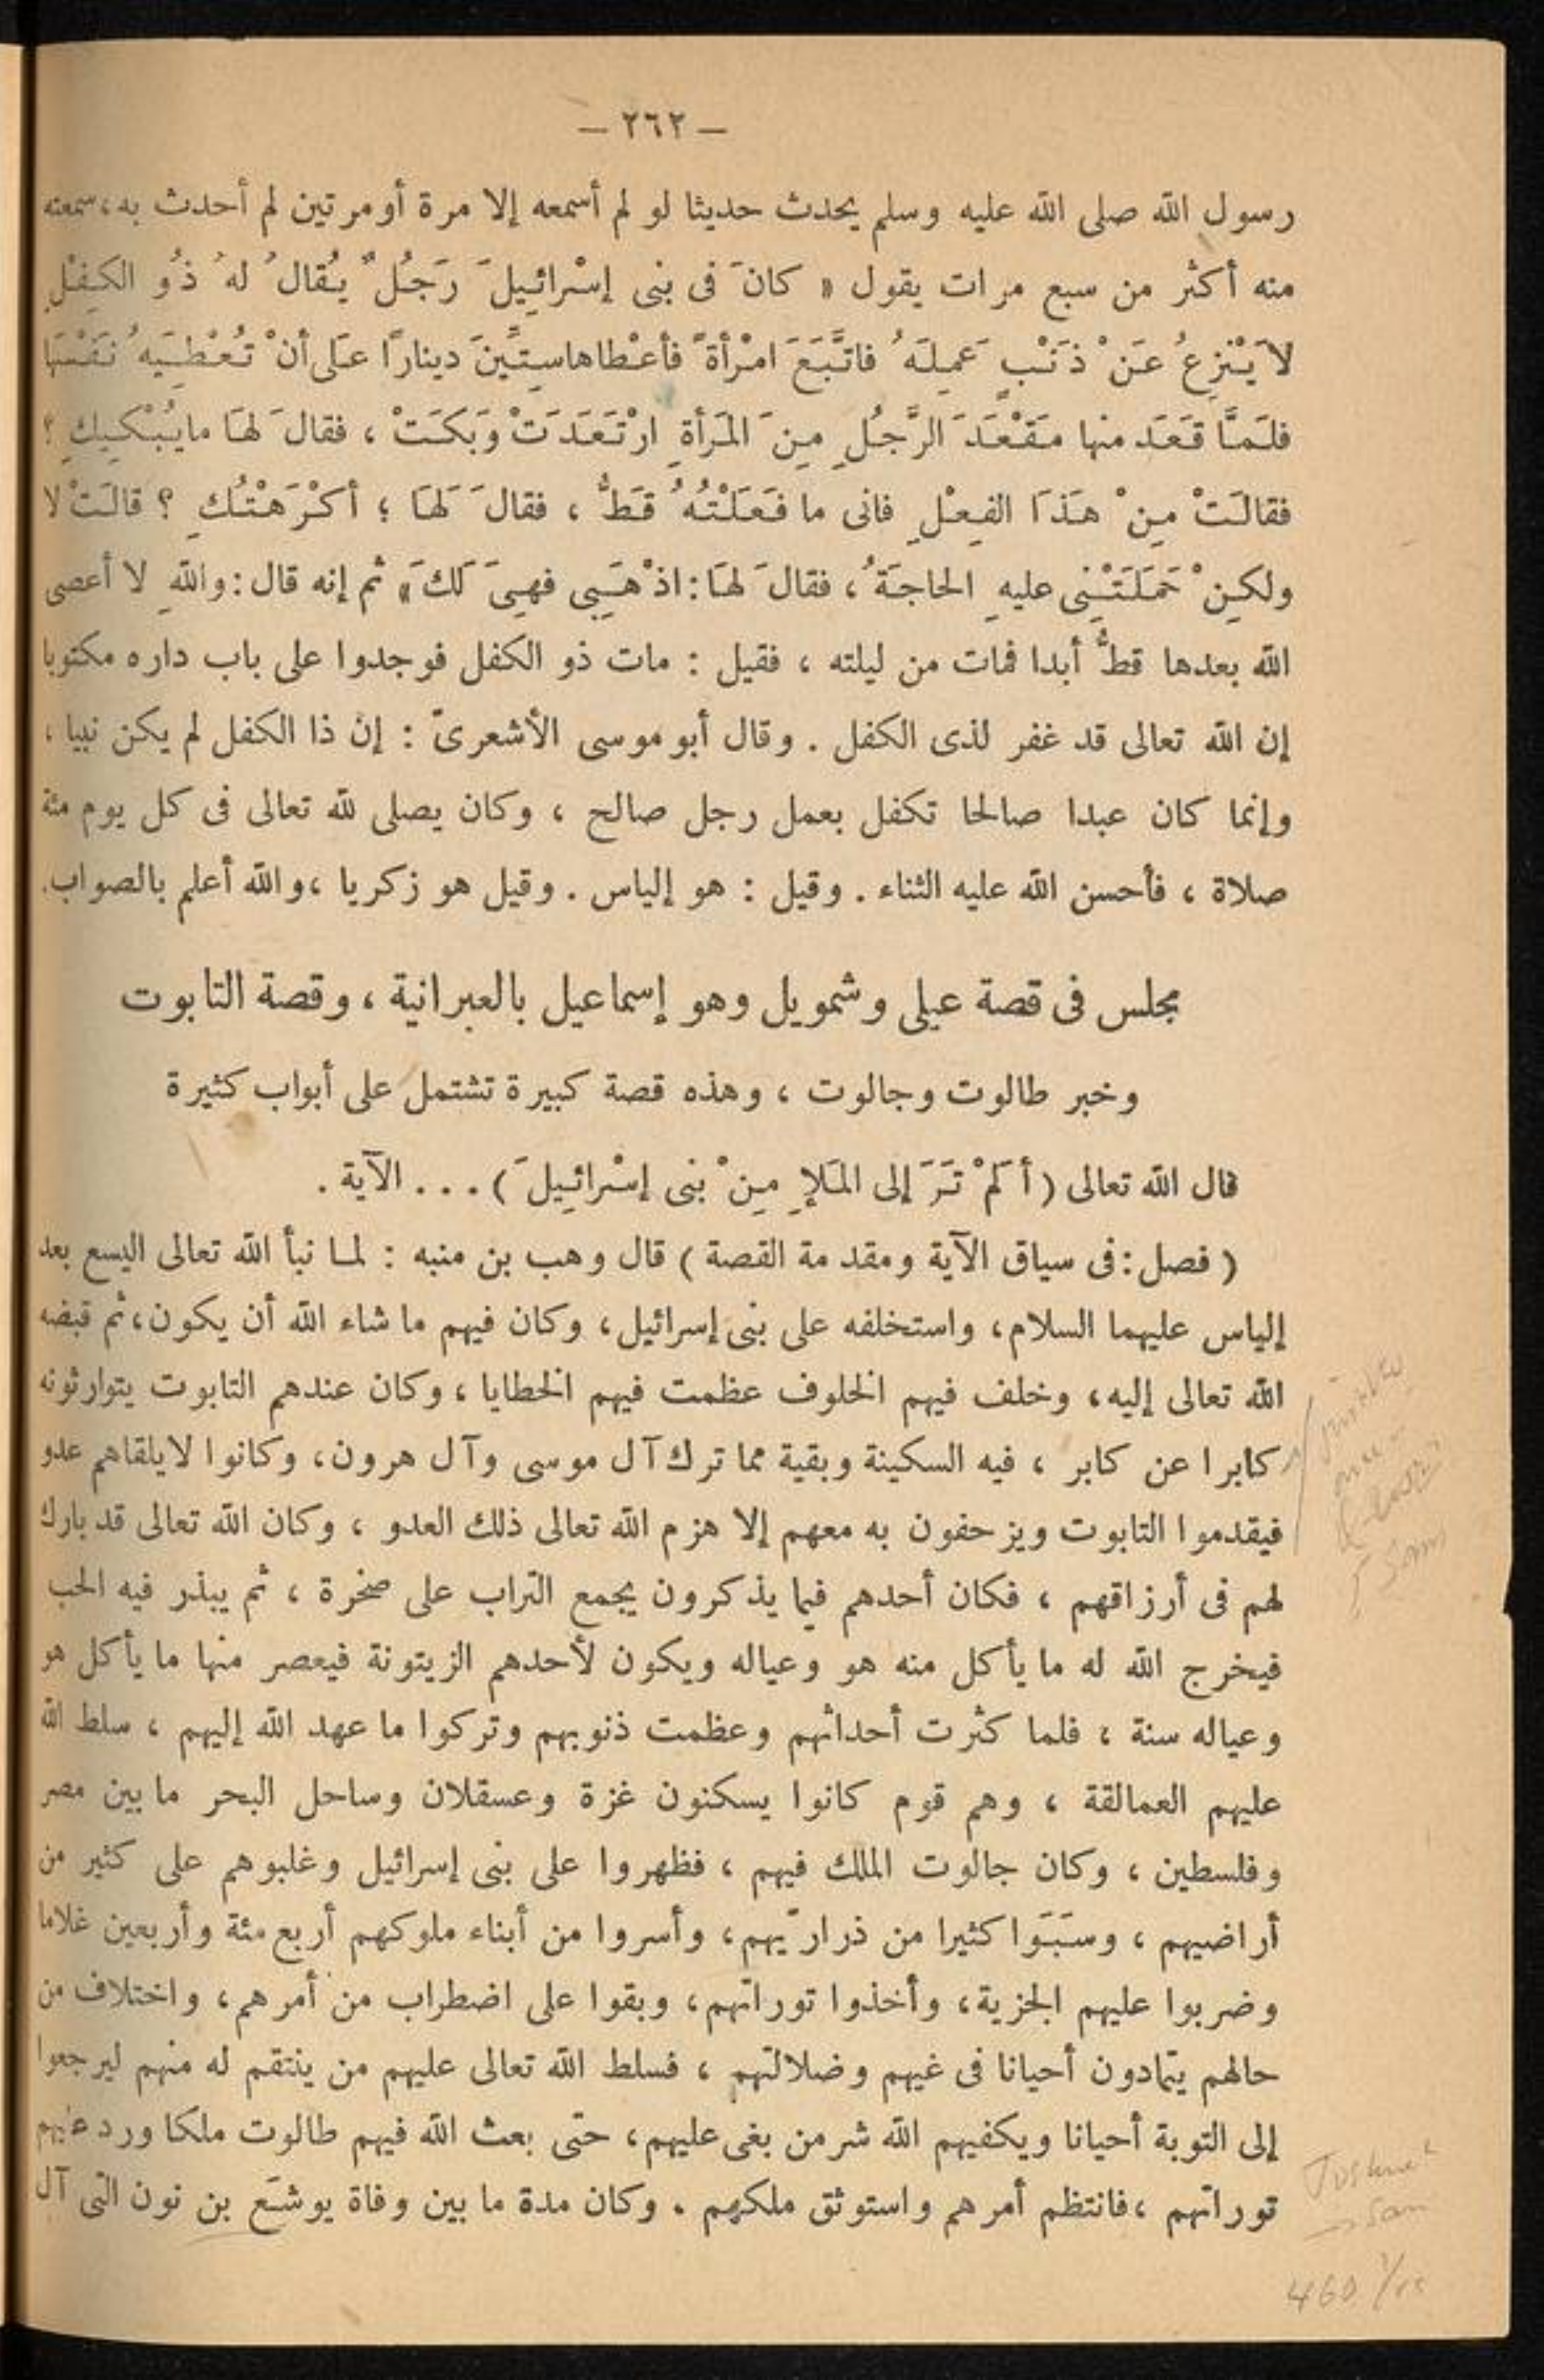 — ٢٦٢ —
رسول الله صلى الله عليه وسلم يحدث حديثا لو لم أسمعه إلا مرة أو مرتين لم أحدث به، سمعته
منه أكثر من سبع مرات يقول « كانَ فى بنى إسْرائيلَ رَجُلٌ يُقالُ لهُ ذُو الكِفْلِ
لاَ يَنْزِعُ عَنْ ذَنْبٍ عَمِلَهُ فاتَّبَعَ امْرأةً فأعْطاها سِتِّينَ دينارًا عَلى أنْ تُعْطِيَهُ نَفْسَها
فلَمَّا قَعَدَ منها مَقْعَدَ الرَّجُلِ مِنَ المَرأةِ ارْتَعَدَتْ وَبَكَتْ ، فقالَ لهَا ما يُبْكِيكِ ؟
فقالَتْ مِنْ هَذَا الفِعْلِ فانى ما فَعَلْتُهُ قَطُّ ، فقالَ لَهَا ؛ أكْرَهْتُكِ ؟ قالَتْ لا
ولكِنْ حَمَلَتْنِى عليهِ الحاجَةُ ، فقالَ لهَا : اذْهَبِى فهِىَ لَكِ » ثم إنه قال : واللهِ لا أعصى
الله بعدها قطُّ أبدا فمات من ليلته ، فقيل : مات ذو الكفل فوجدوا على باب داره مكتوبا
إن الله تعالى قد غفر لذى الكفل . وقال أبو موسى الأشعرىّ : إن ذا الكفل لم يكن نبيا ،
وإنما كان عبدا صالحا تكفل بعمل رجل صالح ، وكان يصلى لله تعالى فى كل يوم مئة
صلاة ، فأحسن الله عليه الثناء . وقيل : هو إلياس . وقيل هو زكريا ، والله أعلم بالصواب.
مجلس فى قصة عيلى وشمويل وهو إسماعيل بالعبرانية ، وقصة التابوت
وخبر طالوت وجالوت ، وهذه قصة كبيرة تشتمل على أبواب كثيرة
قال الله تعالى ( أَلَمْ تَرَ إلى المَلإِ مِنْ بنى إسْرائيلَ ) ... الآية .
( فصل : فى سياق الآية ومقدمة القصة ) قال وهب بن منبه : لما نبأ الله تعالى اليسع بعد
إلياس عليهما السلام، واستخلفه على بنى إسرائيل، وكان فيهم ما شاء الله أن يكون، ثم قبضه
الله تعالى إليه، وخلف فيهم الخلوف عظمت فيهم الخطايا ، وكان عندهم التابوت يتوارثونه
كابرا عن كابر ، فيه السكينة وبقية مما ترك آل موسى وآل هرون، وكانوا لا يلقاهم عدو
فيقدموا التابوت ويزحفون به معهم إلا هزم الله تعالى ذلك العدو ، وكان الله تعالى قد بارك
لهم فى أرزاقهم ، فكان أحدهم فيما يذكرون يجمع التراب على صخرة ، ثم يبذر فيه الحب
فيخرج الله له ما يأكل منه هو وعياله ويكون لأحدهم الزيتونة فيعصر منها ما يأكل هو
وعياله سنة ، فلما كثرت أحداثهم وعظمت ذنوبهم وتركوا ما عهد الله إليهم ، سلط الله
عليهم العمالقة ، وهم قوم كانوا يسكنون غزة وعسقلان وساحل البحر ما بين مصر
وفلسطين ، وكان جالوت الملك فيهم ، فظهروا على بنى إسرائيل وغلبوهم على كثير من
أراضيهم ، وسَبَوا كثيرا من ذراريّهم، وأسروا من أبناء ملوكهم أربع مئة وأربعين غلاما
وضربوا عليهم الجزية، وأخذوا توراتهم، وبقوا على اضطراب من أمرهم، واختلاف من
حالهم يتمادون أحيانا فى غيهم وضلالتهم ، فسلط الله تعالى عليهم من ينتقم له منهم ليرجعوا
إلى التوبة أحيانا ويكفيهم الله شر من بغى عليهم، حتى بعث الله فيهم طالوت ملكا ورد عليهم
توراتهم ، فانتظم أمرهم واستوثق ملكهم . وكان مدة ما بين وفاة يوشَع بن نون التى آل
460